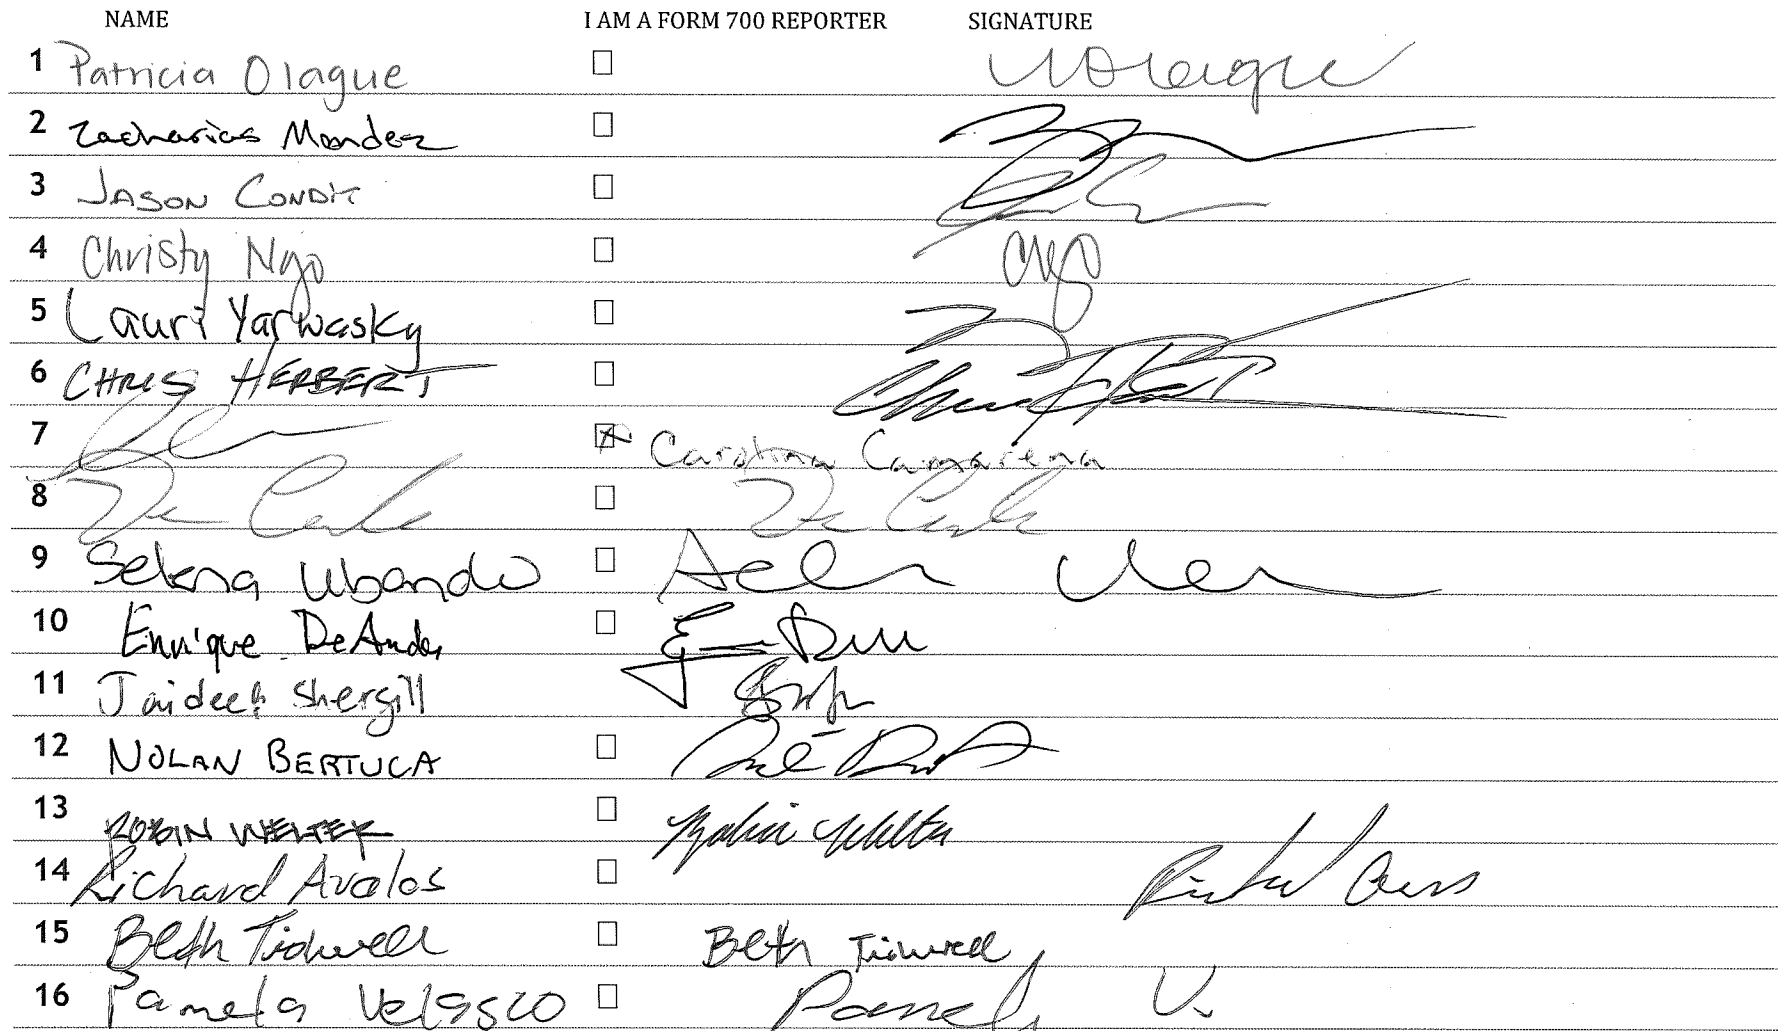 NAME I AM A FORM 700 REPORTER SIGNATURE
1 Patricia Olague ☐
2 Zacharias Mendez ☐
3 JASON CONDIT ☐
4 Christy Ngo ☐
5 Lauri Yarwasky ☐
6 CHRIS HERBERT ☐
7 ☒ Carolina Camarena
8 ☐
9 Selena Ubando ☐
10 Enrique DeAnda ☐
11 Jaideep Shergill
12 NOLAN BERTUCA ☐
13 ROBIN WELTER ☐ Robin Welter
14 Richard Avalos ☐
15 Beth Tidwell ☐ Beth Tidwell
16 Pamela Velasco ☐ Pamela V.